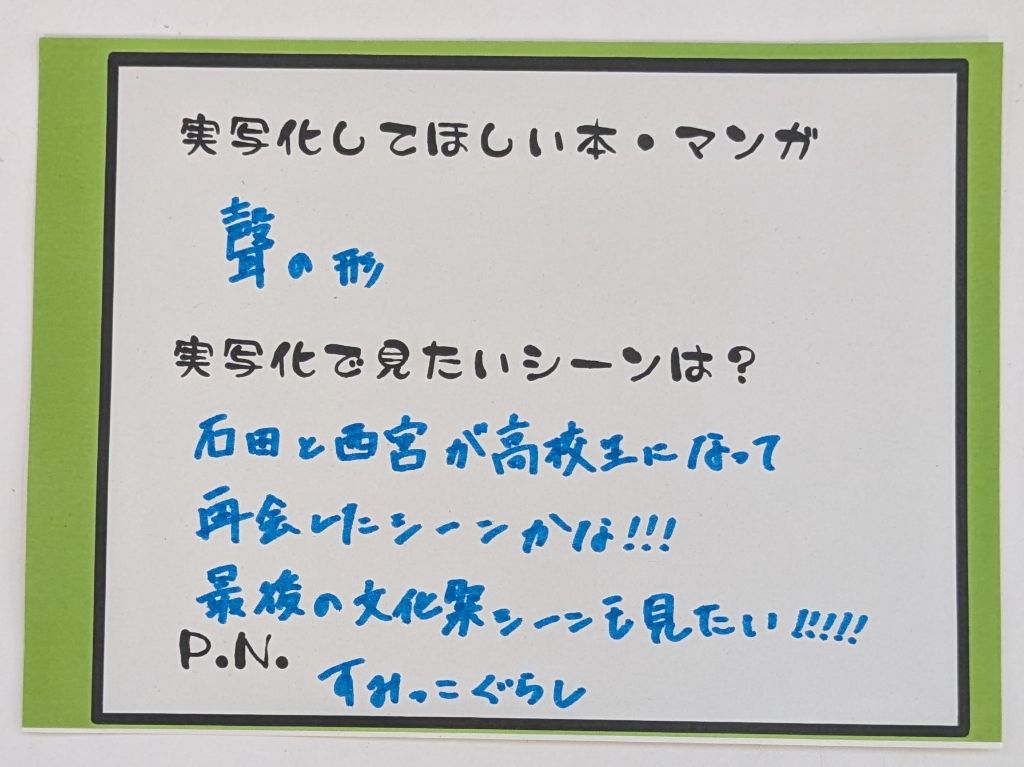 実写化してほしい本・マンガ
聲の形
実写化で見たいシーンは?
石田と西宮が高校生になって
再会したシーンかな!!!
最後の文化祭シーンも見たい!!!!!
P.N.
すみっこぐらし